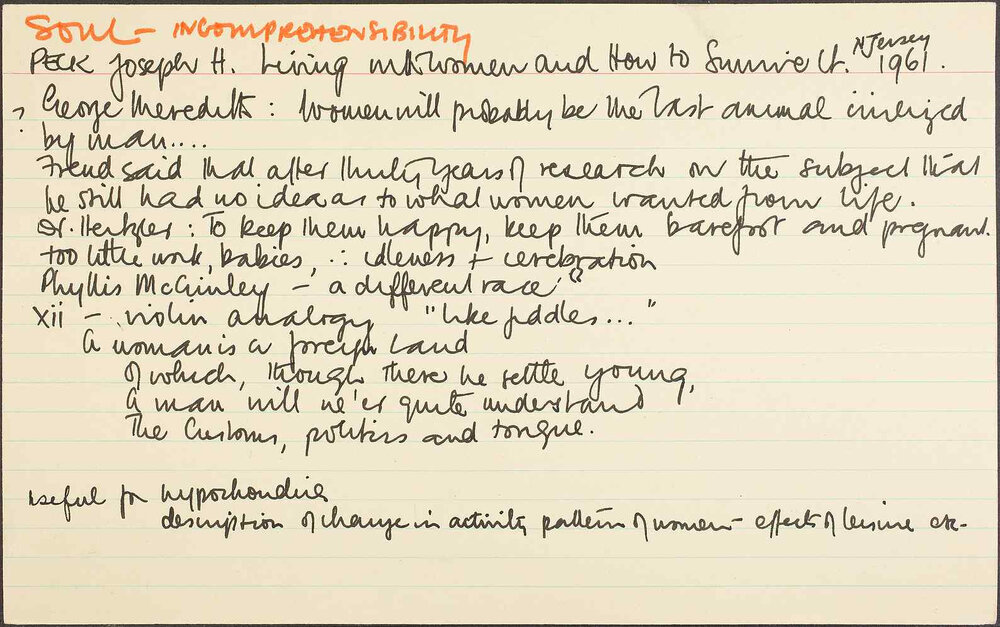 SOUL - INCOMPREHENSIBILITY
PECK Joseph H. Living with Women and How to Survive It. N Jersey 1961.
? George Meredith: Women will probably be the last animal civilized
by man....
Freud said that after thirty years of research on the subject that
he still had no idea as to what women wanted from life.
Dr. Hertzler: To keep them happy, keep them barefoot and pregnant.
too little work, babies, ∴ idleness + cerebration
Phyllis McGinley - a different race"
xii - violin analogy "like fiddles..."
A woman is a foreign land
Of which, though there he settle young,
A man will ne'er quite understand
The Customs, politics and tongue.
useful for hypochondria
description of change in activity pattern of women - effects of leisure etc-